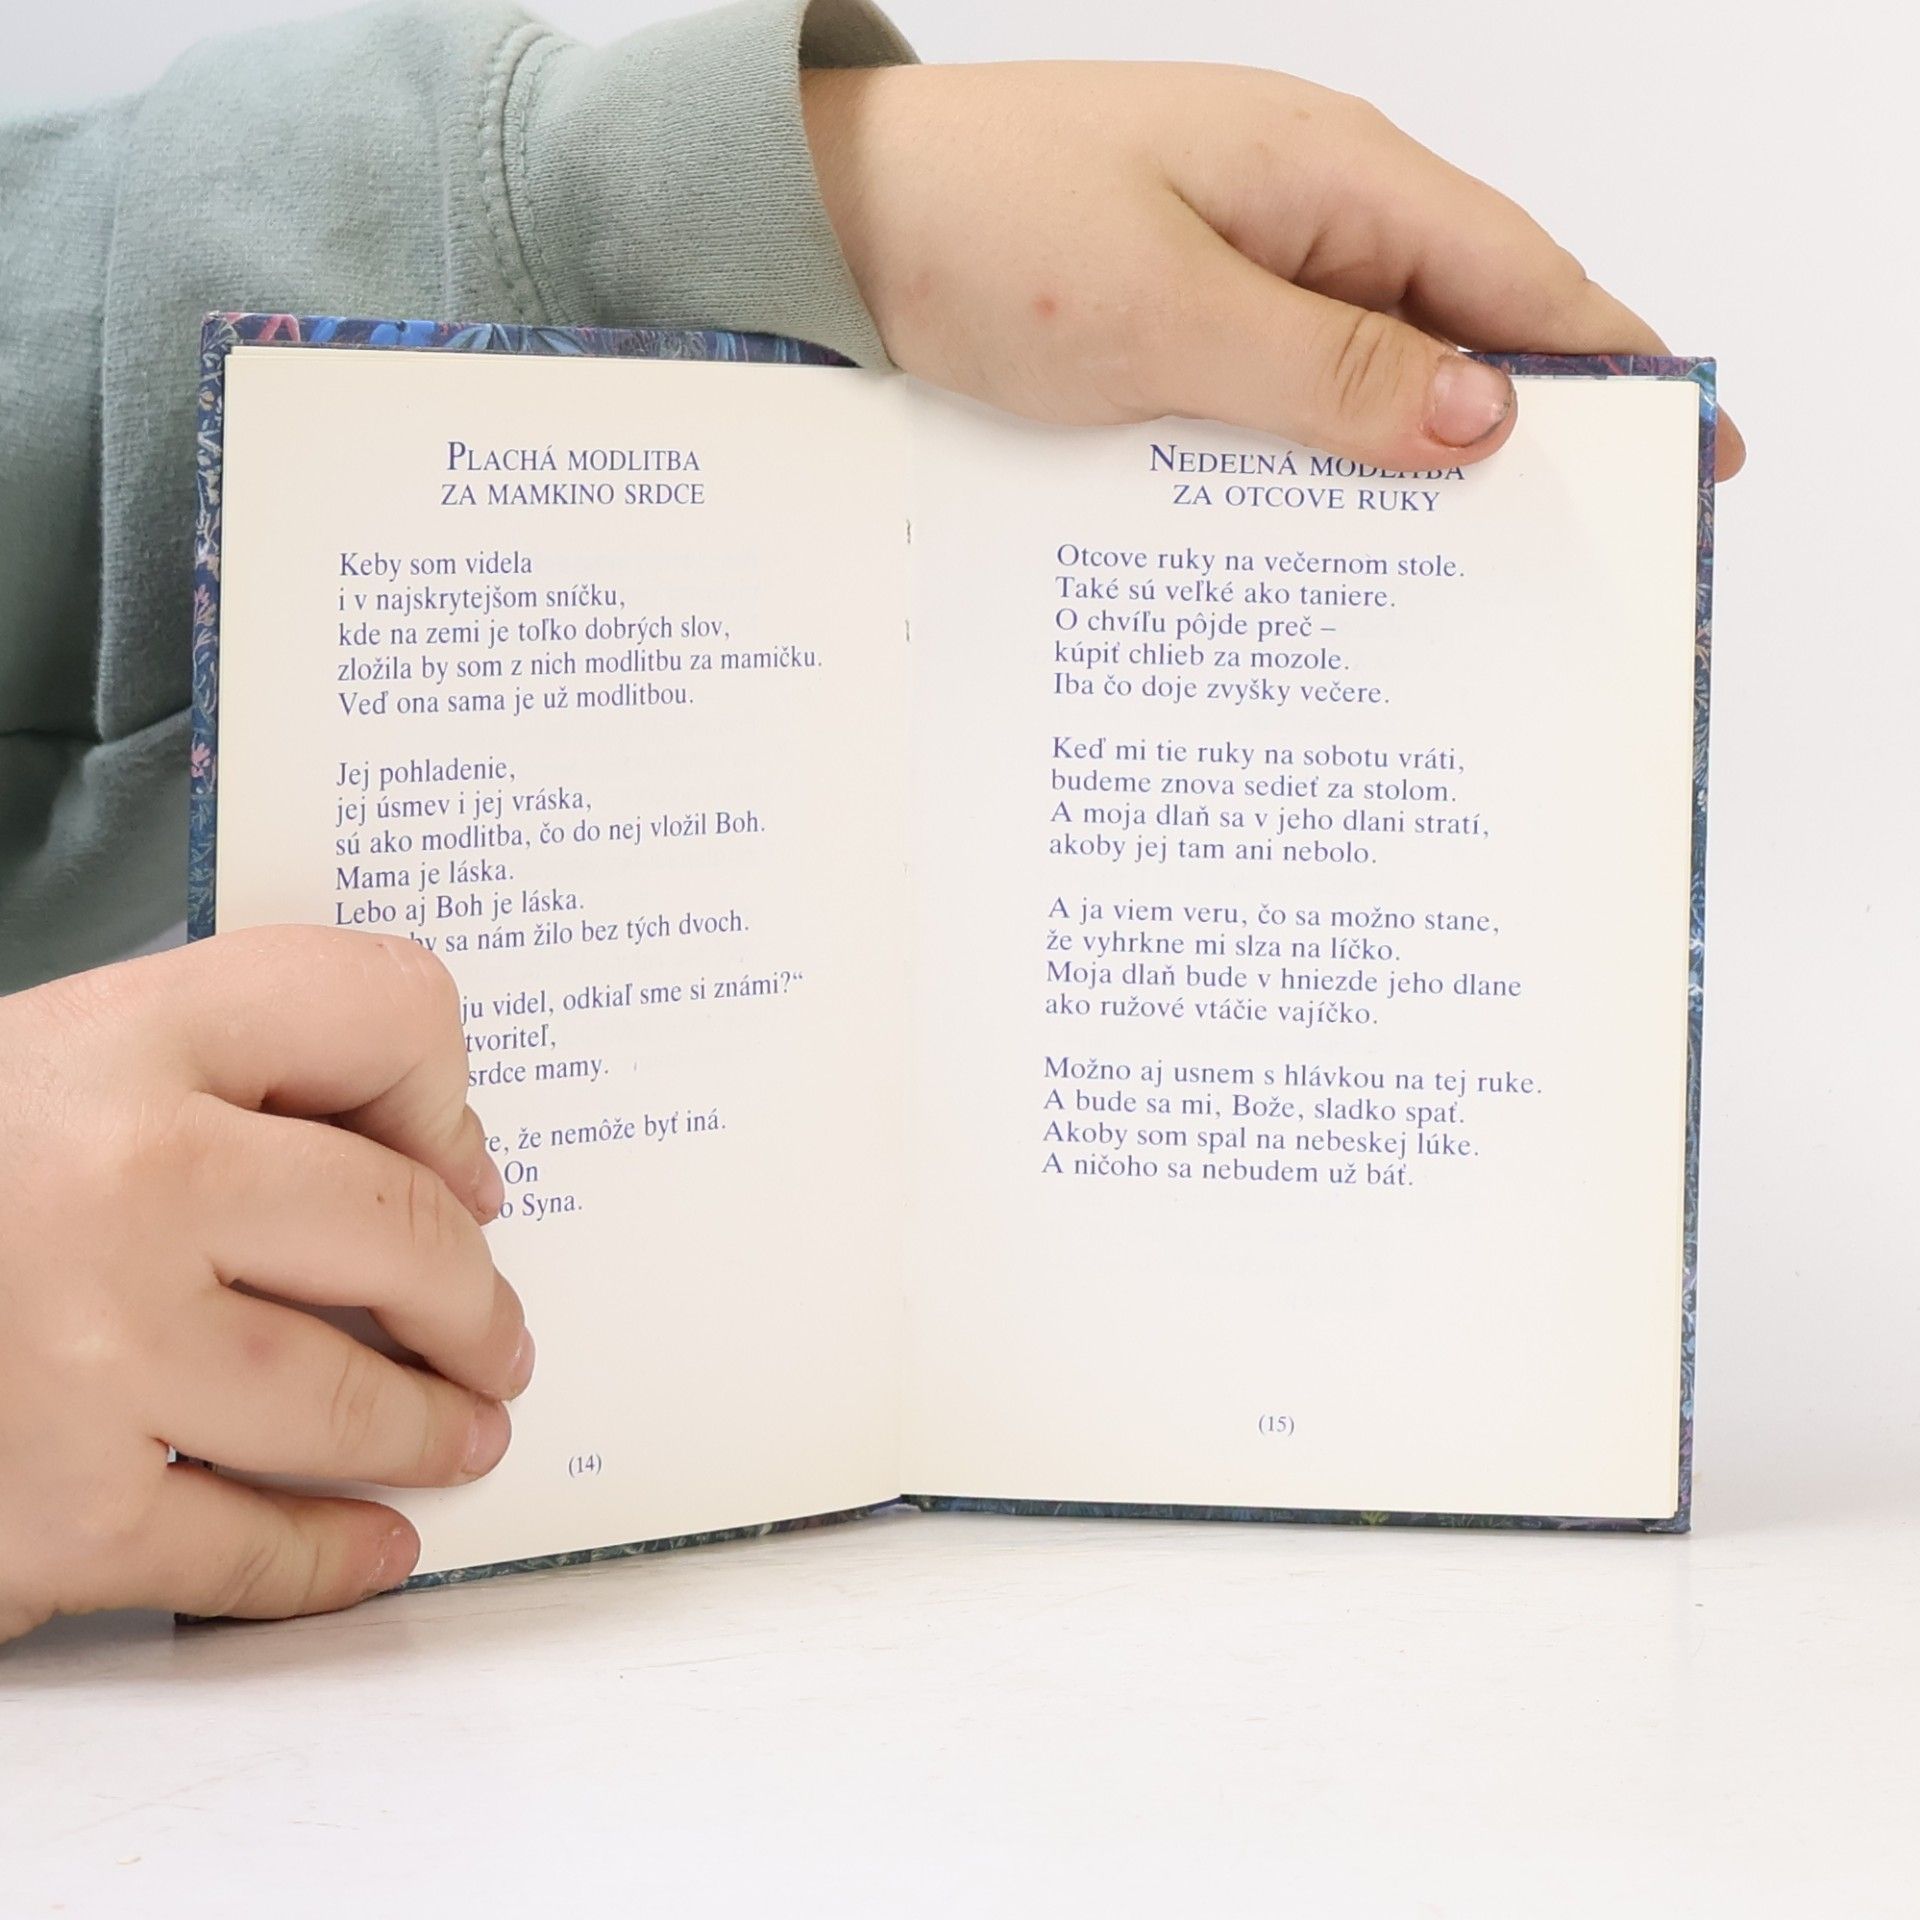 PLACHÁ MODLITBA
ZA MAMKINO SRDCE
Keby som videla
i v najskrytejšom sníčku,
kde na zemi je toľko dobrých slov,
zložila by som z nich modlitbu za mamičku.
Veď ona sama je už modlitbou.
Jej pohladenie,
jej úsmev i jej vráska,
sú ako modlitba, čo do nej vložil Boh.
Mama je láska.
Lebo aj Boh je láska.
sa nám žilo bez tých dvoch.
ju videl, odkiaľ sme si známi?“
srdce mamy.
že nemôže byť iná.
On
Syna.
(14)
NEDEĽNÁ MODLITBA
ZA OTCOVE RUKY
Otcove ruky na večernom stole.
Také sú veľké ako taniere.
O chvíľu pôjde preč –
kúpiť chlieb za mozole.
Iba čo doje zvyšky večere.
Keď mi tie ruky na sobotu vráti,
budeme znova sedieť za stolom.
A moja dlaň sa v jeho dlani stratí,
akoby jej tam ani nebolo.
A ja viem veru, čo sa možno stane,
že vyhrkne mi slza na líčko.
Moja dlaň bude v hniezde jeho dlane
ako ružové vtáčie vajíčko.
Možno aj usnem s hlávkou na tej ruke.
A bude sa mi, Bože, sladko spať.
Akoby som spal na nebeskej lúke.
A ničoho sa nebudem už báť.
(15)